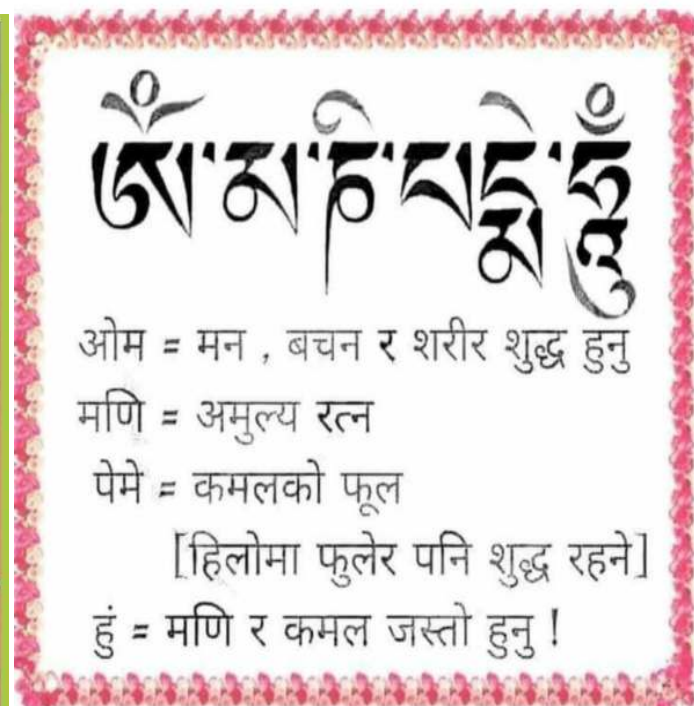 ༀ་མ་ཎི་པདྨེ་ཧཱུྃ
ओम = मन , बचन र शरीर शुद्ध हुनु
मणि = अमुल्य रत्न
पेमे = कमलको फूल
[हिलोमा फुलेर पनि शुद्ध रहने]
हुं = मणि र कमल जस्तो हुनु !